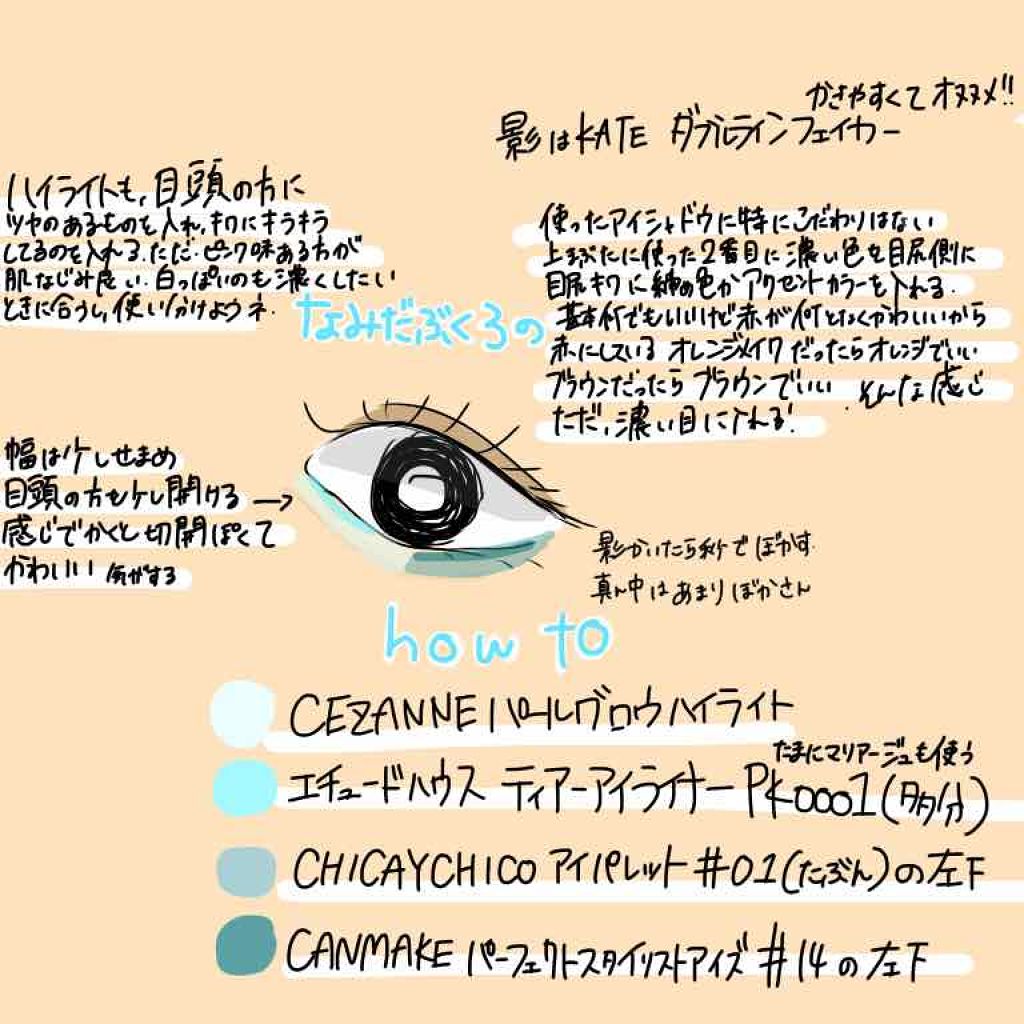 かさやすくてオススメ!!
影はKATE ダブルラインフェイカー
ハイライトも,目頭の方に
ツヤのあるものを入れ,キワにキラキラ
してるのを入れる.ただ.ピンク味ある方が
肌なじみ良い.白っぽいのも濃くしたい
ときに合うし,使い分けようネ.
使ったアイシャドウに特にこだわりはない
上まぶたに使った2番目に濃い色を目尻側に
目尻キワに締め色かアクセントカラーを入れる.
基本何でもいいけど赤が何となくかわいいから
赤にしている オレンジメイクだったらオレンジでいい
ブラウンだったらブラウンでいい .そんな感じ
ただ,濃い目に入れる!
なみだぶくろの
幅は少しせまめ
目頭の方も少し開ける →
感じでかくと切開ぽくて
かわいい 気がする
影かいたら秒でぼかす.
真ん中はあまりぼかさん
how to
CEZANNE パールグロウハイライト
たまにマリアージュも使う
エチュードハウス ティアーアイライナー PK0001(多分)
CHICAYCHICO アイパレット #01(たぶん)の左下
CANMAKE パーフェクトスタイリストアイズ #14の左下